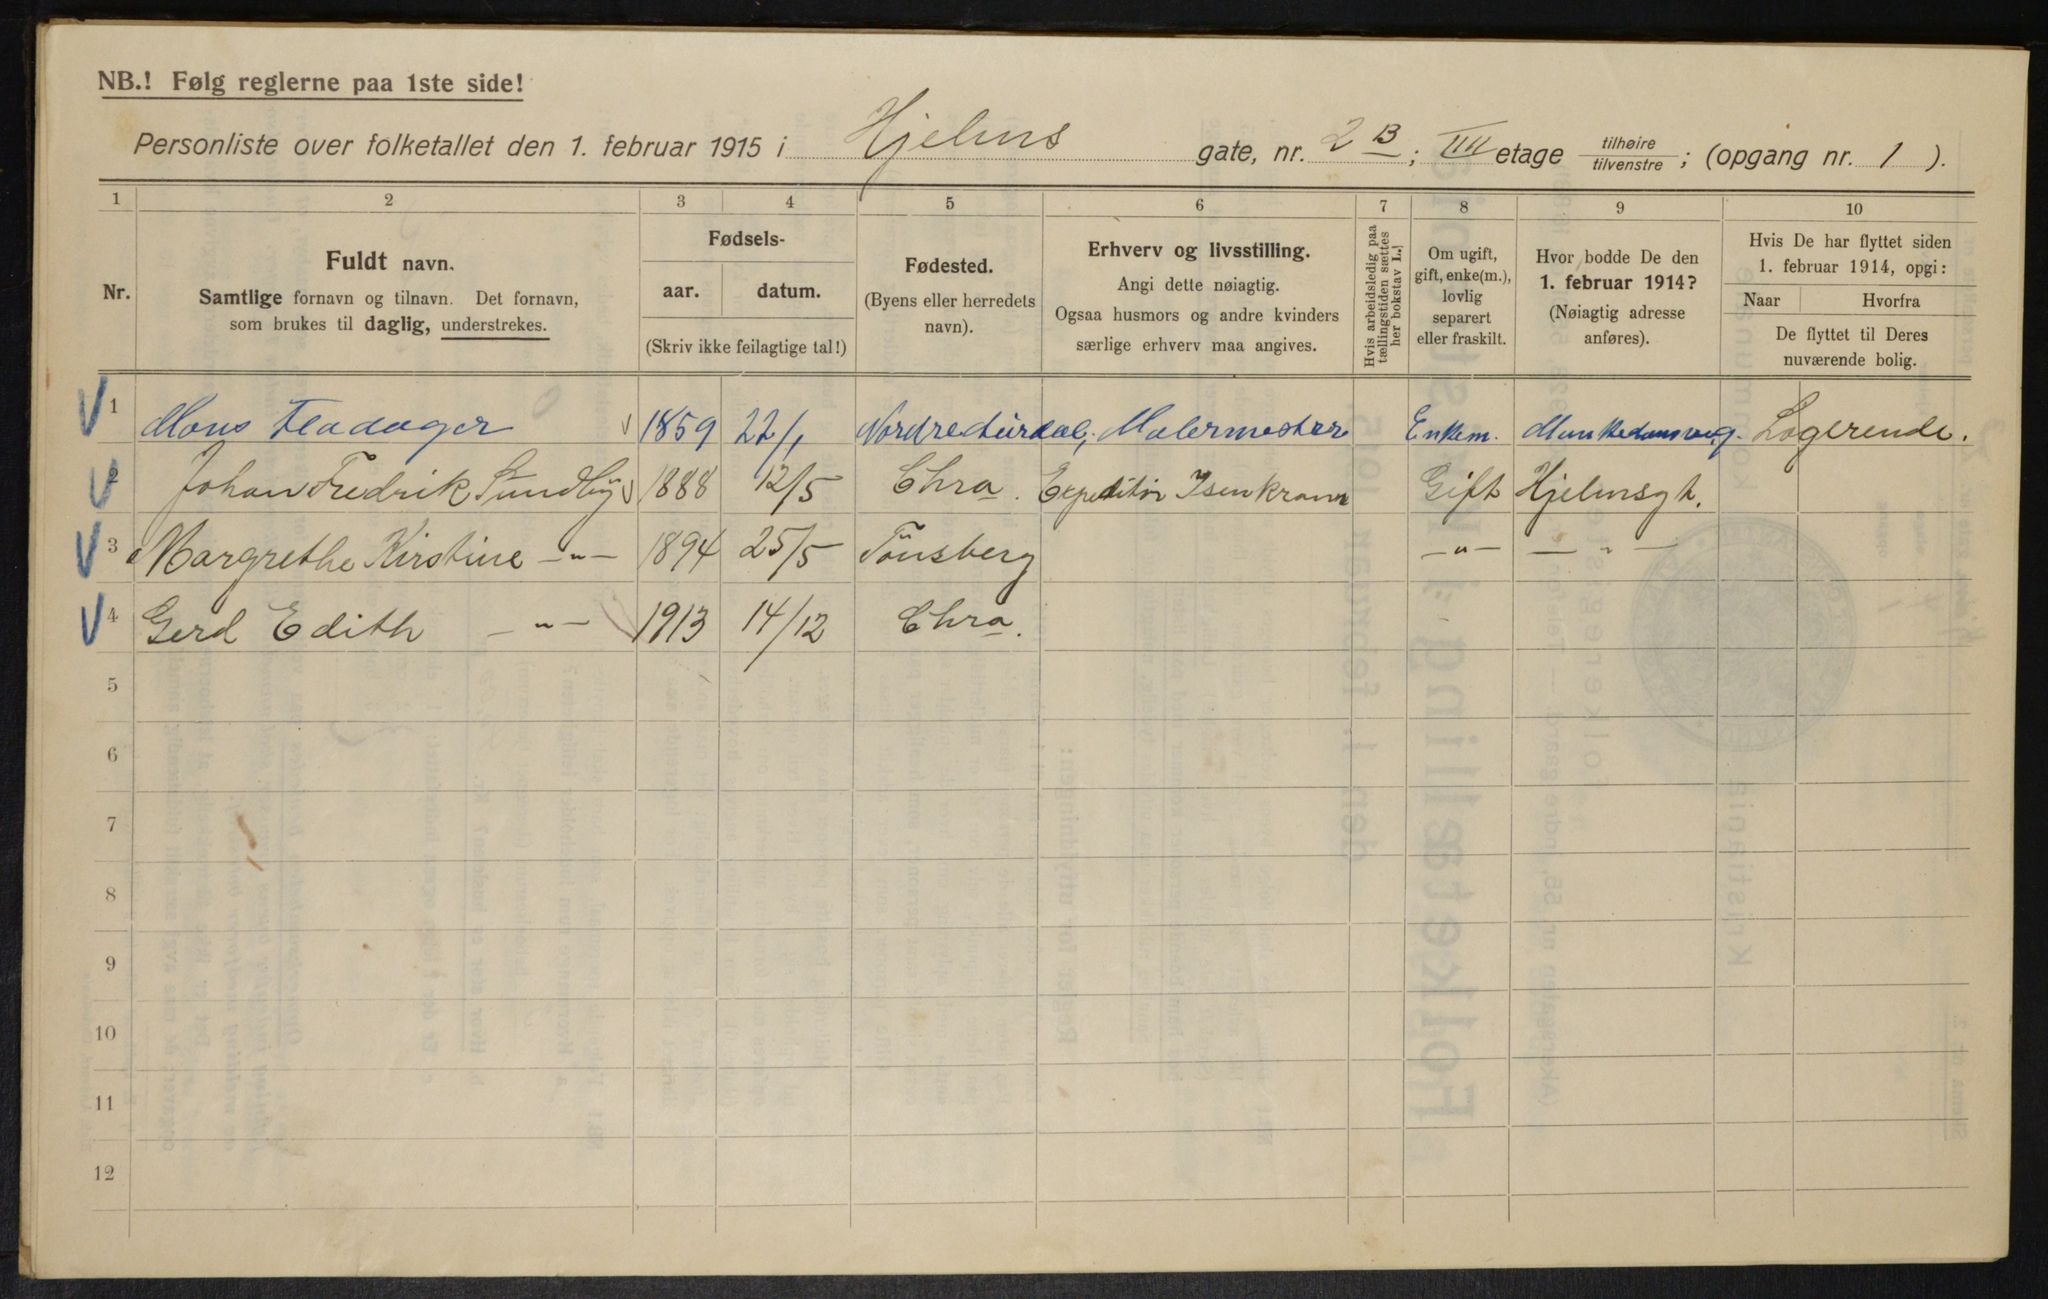 NB.! Følg reglerne paa 1ste side!
Personliste over folketallet den 1. februar 1915 i Hjelms gate, nr. 2 B; IIII etage tilhøire tilvenstre; (opgang nr. 1).
1 2 3 4 5 6 7 8 9 10
Nr.
Fuldt navn.
Samtlige fornavn og tilnavn. Det fornavn,
som brukes til daglig, understrekes.
Fødsels-
aar. datum.
(Skriv ikke feilagtige tal!)
Fødested.
(Byens eller herredets
navn).
Erhverv og livsstilling.
Angi dette nøiagtig.
Ogsaa husmors og andre kvinders
særlige erhverv maa angives.
Hvis arbeidsledig paa
tællingstiden sættes
her bokstav L.
Om ugift,
gift, enke(m.),
lovlig
separert
eller fraskilt.
Hvor bodde De den
1. februar 1914?
(Nøiagtig adresse
anføres).
Hvis De har flyttet siden
1. februar 1914, opgi:
Naar Hvorfra
De flyttet til Deres
nuværende bolig.
1 Mons Fladager 1859 22/1 Malermester Enkem. Logerende.
2 Johan Fredrik Sundby 1888 12/5 Chra. Expeditör Isenkram Gift Hjelmsgt.
3 Margrethe Kirstine -"- 1894 25/5 Tönsberg -"- -"-
4 Gerd Edith -"- 1913 14/12 Chra.
5
6
7
8
9
10
11
12